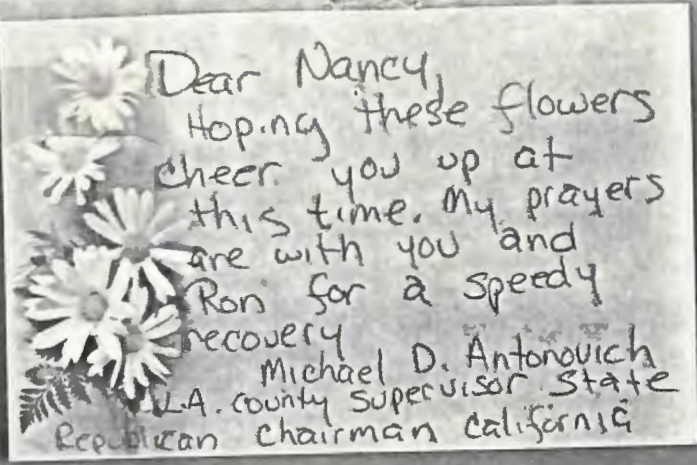 Dear Nancy,
Hoping these flowers
cheer you up at
this time. My prayers
are with you and
Ron for a speedy
recovery
Michael D. Antonovich
L.A. County Supervisor State
Republican Chairman California